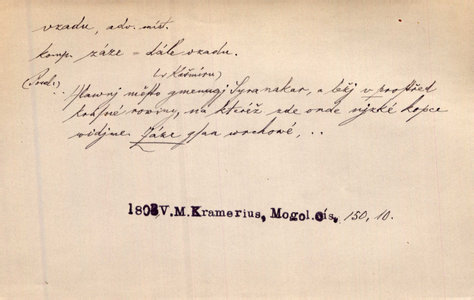 vzadu, adv. míst.
komp. záze = dále vzadu.
(v Kašmíru)
hlawnj město gmenugj Syranakar, a ležj v prostřed
krásné rowiny, na kteréž zde onde njzké kopce
widjme. Záze gsau wrchowé, ..
1803 V.M.Kramerius, Mogol.cís, 150, 10.